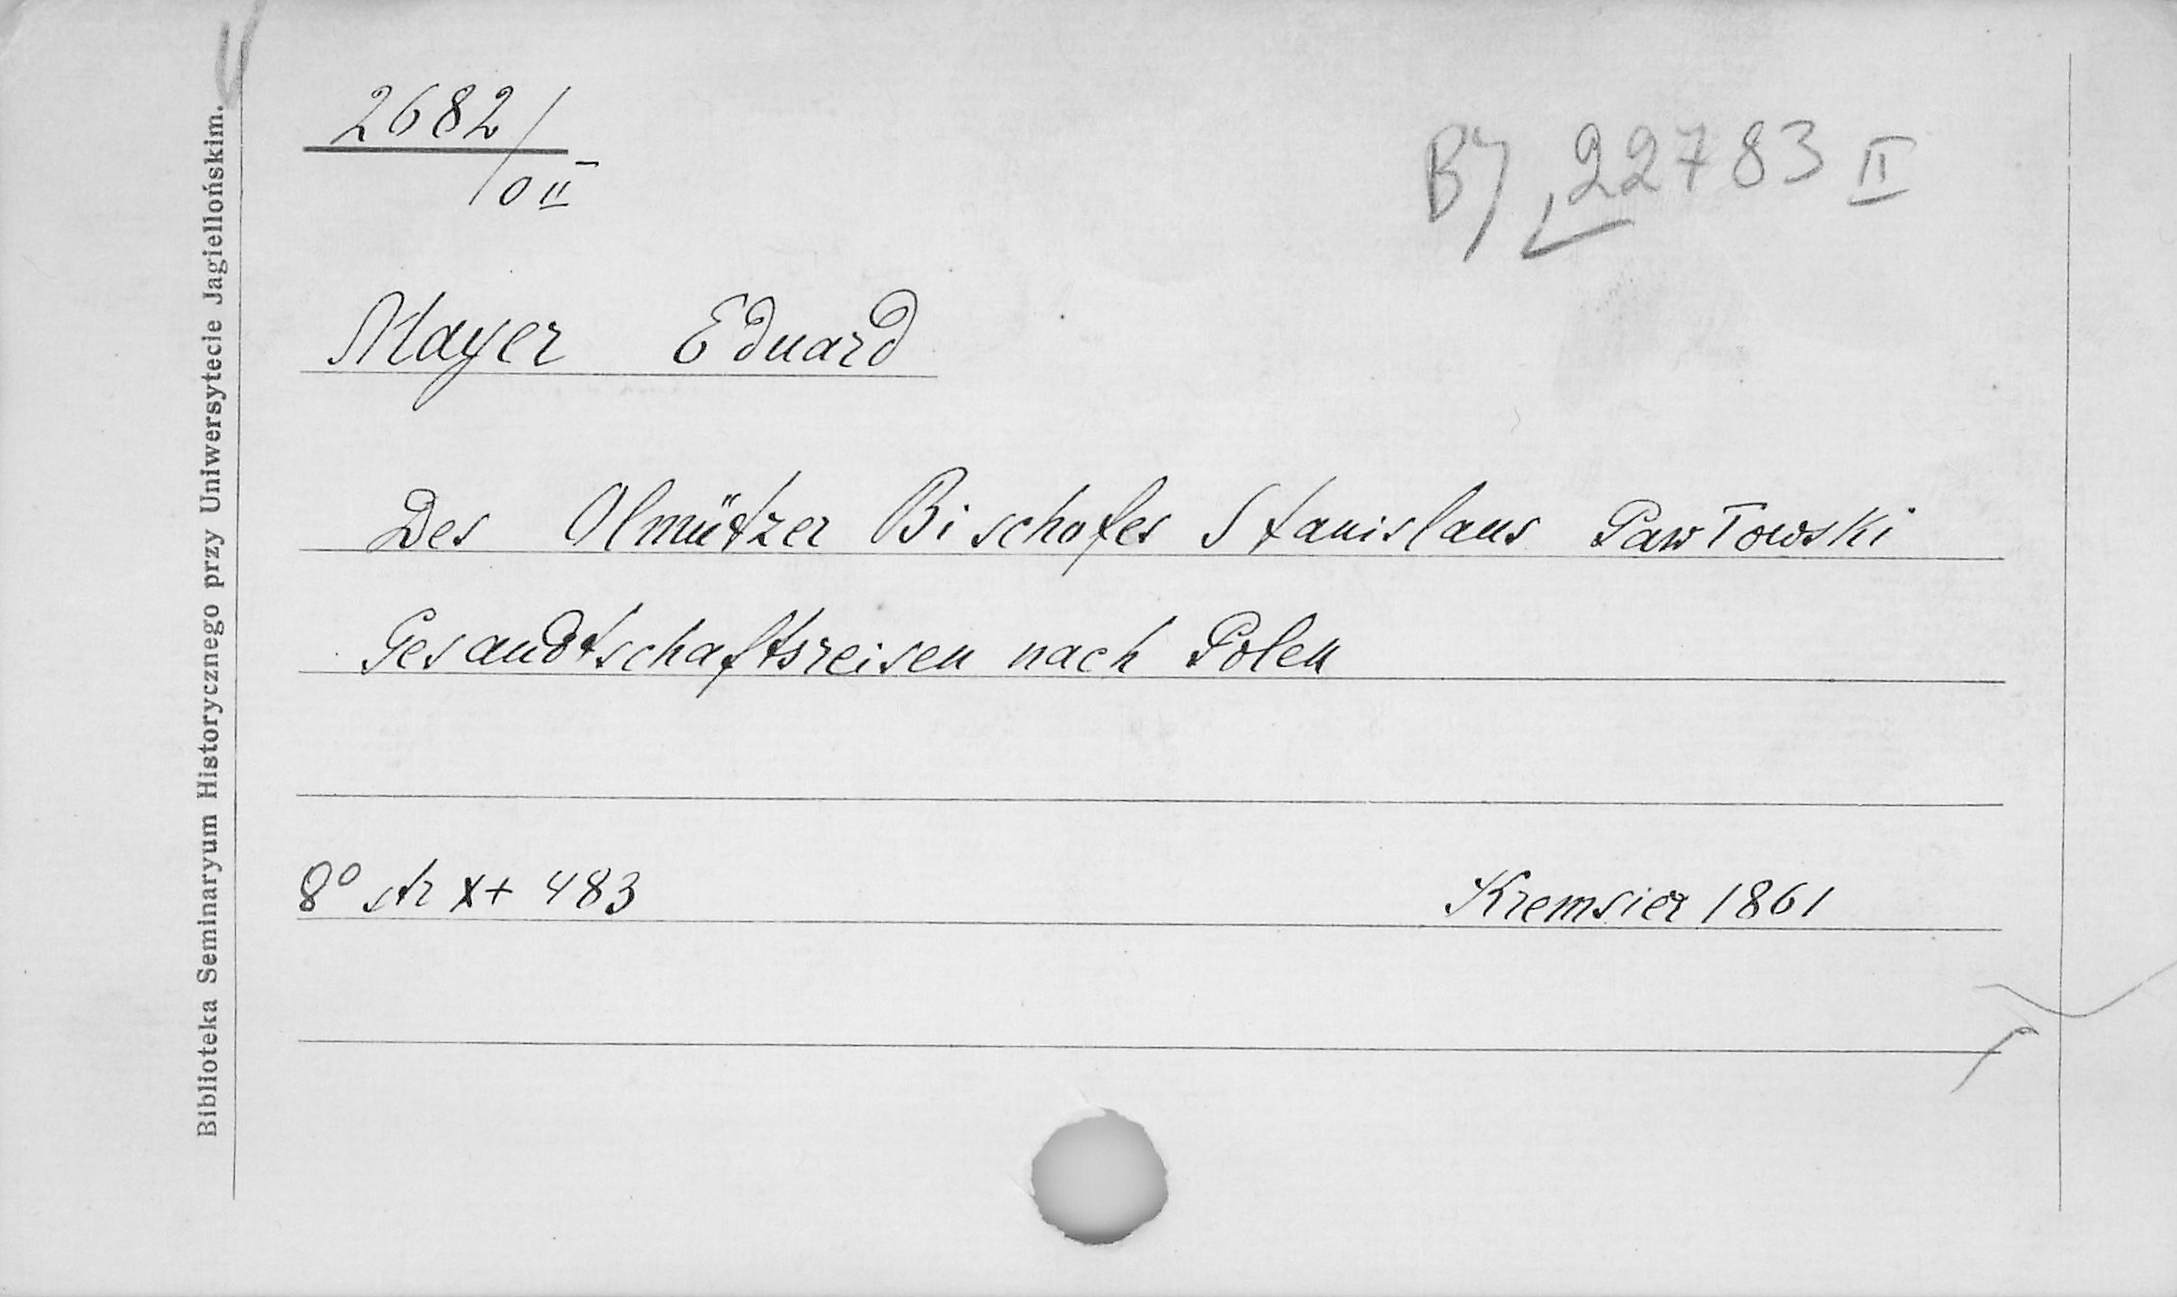 2682/OII
BJ 22783 II
Mayer Eduard
Des Olmützer Bischofes Stanislaus Pawłowski
Gesandtschaftsreisen nach Polen
8° str X+ 483
Kremsier 1861
Biblioteka Seminaryum Historycznego przy Uniwersytecie Jagiellońskim.